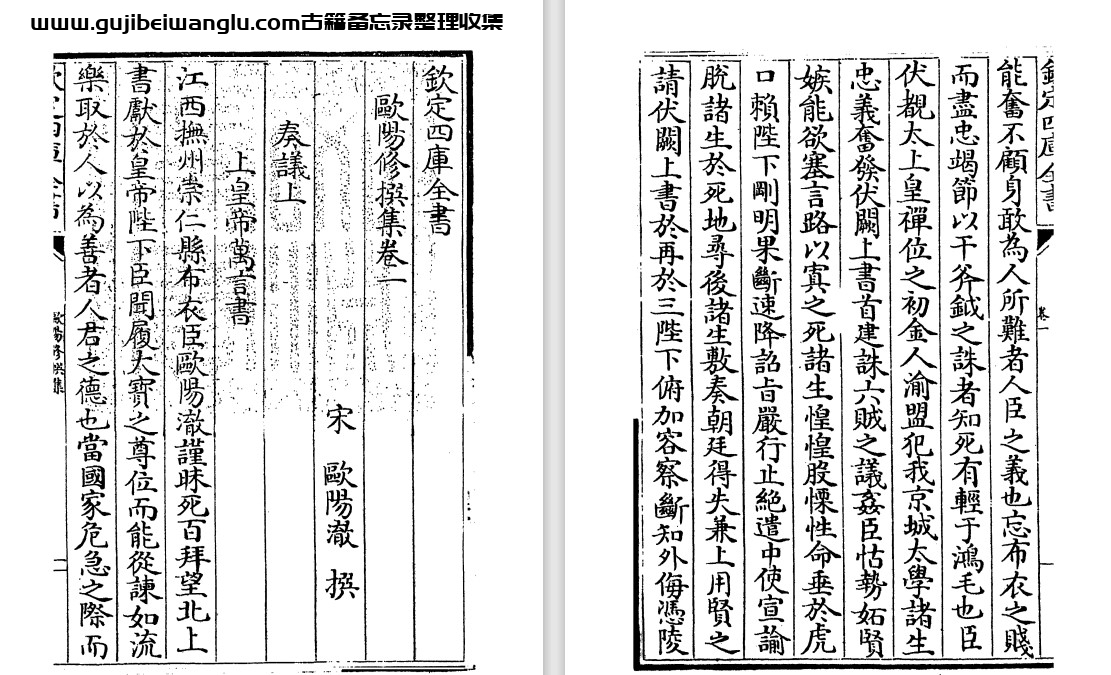 www.gujibeiwanglu.com古籍备忘录整理收集
欽定四庫全書
歐陽修撰集卷一
宋 歐陽澈 撰
奏議上
上皇帝萬言書
江西撫州崇仁縣布衣臣歐陽澈謹昧死百拜望北上
書獻於皇帝陛下臣聞履大寶之尊位而能從諫如流
樂取於人以為善者人君之德也當國家危急之際而
能奮不顧身敢為人所難者人臣之義也忘布衣之賤
而盡忠竭節以干斧鉞之誅者知死有輕于鴻毛也臣
伏覩太上皇禪位之初金人渝盟犯我京城太學諸生
忠義奮發伏闕上書首建誅六賊之議姦臣怙勢妬賢
嫉能欲塞言路以寘之死諸生惶惶股慄性命垂於虎
口賴陛下剛明果斷速降詔旨嚴行止絶遣中使宣諭
脫諸生於死地尋後諸生敷奏朝廷得失兼上用賢之
請伏闕上書於再於三陛下俯加容察斷知外侮憑陵
卷一